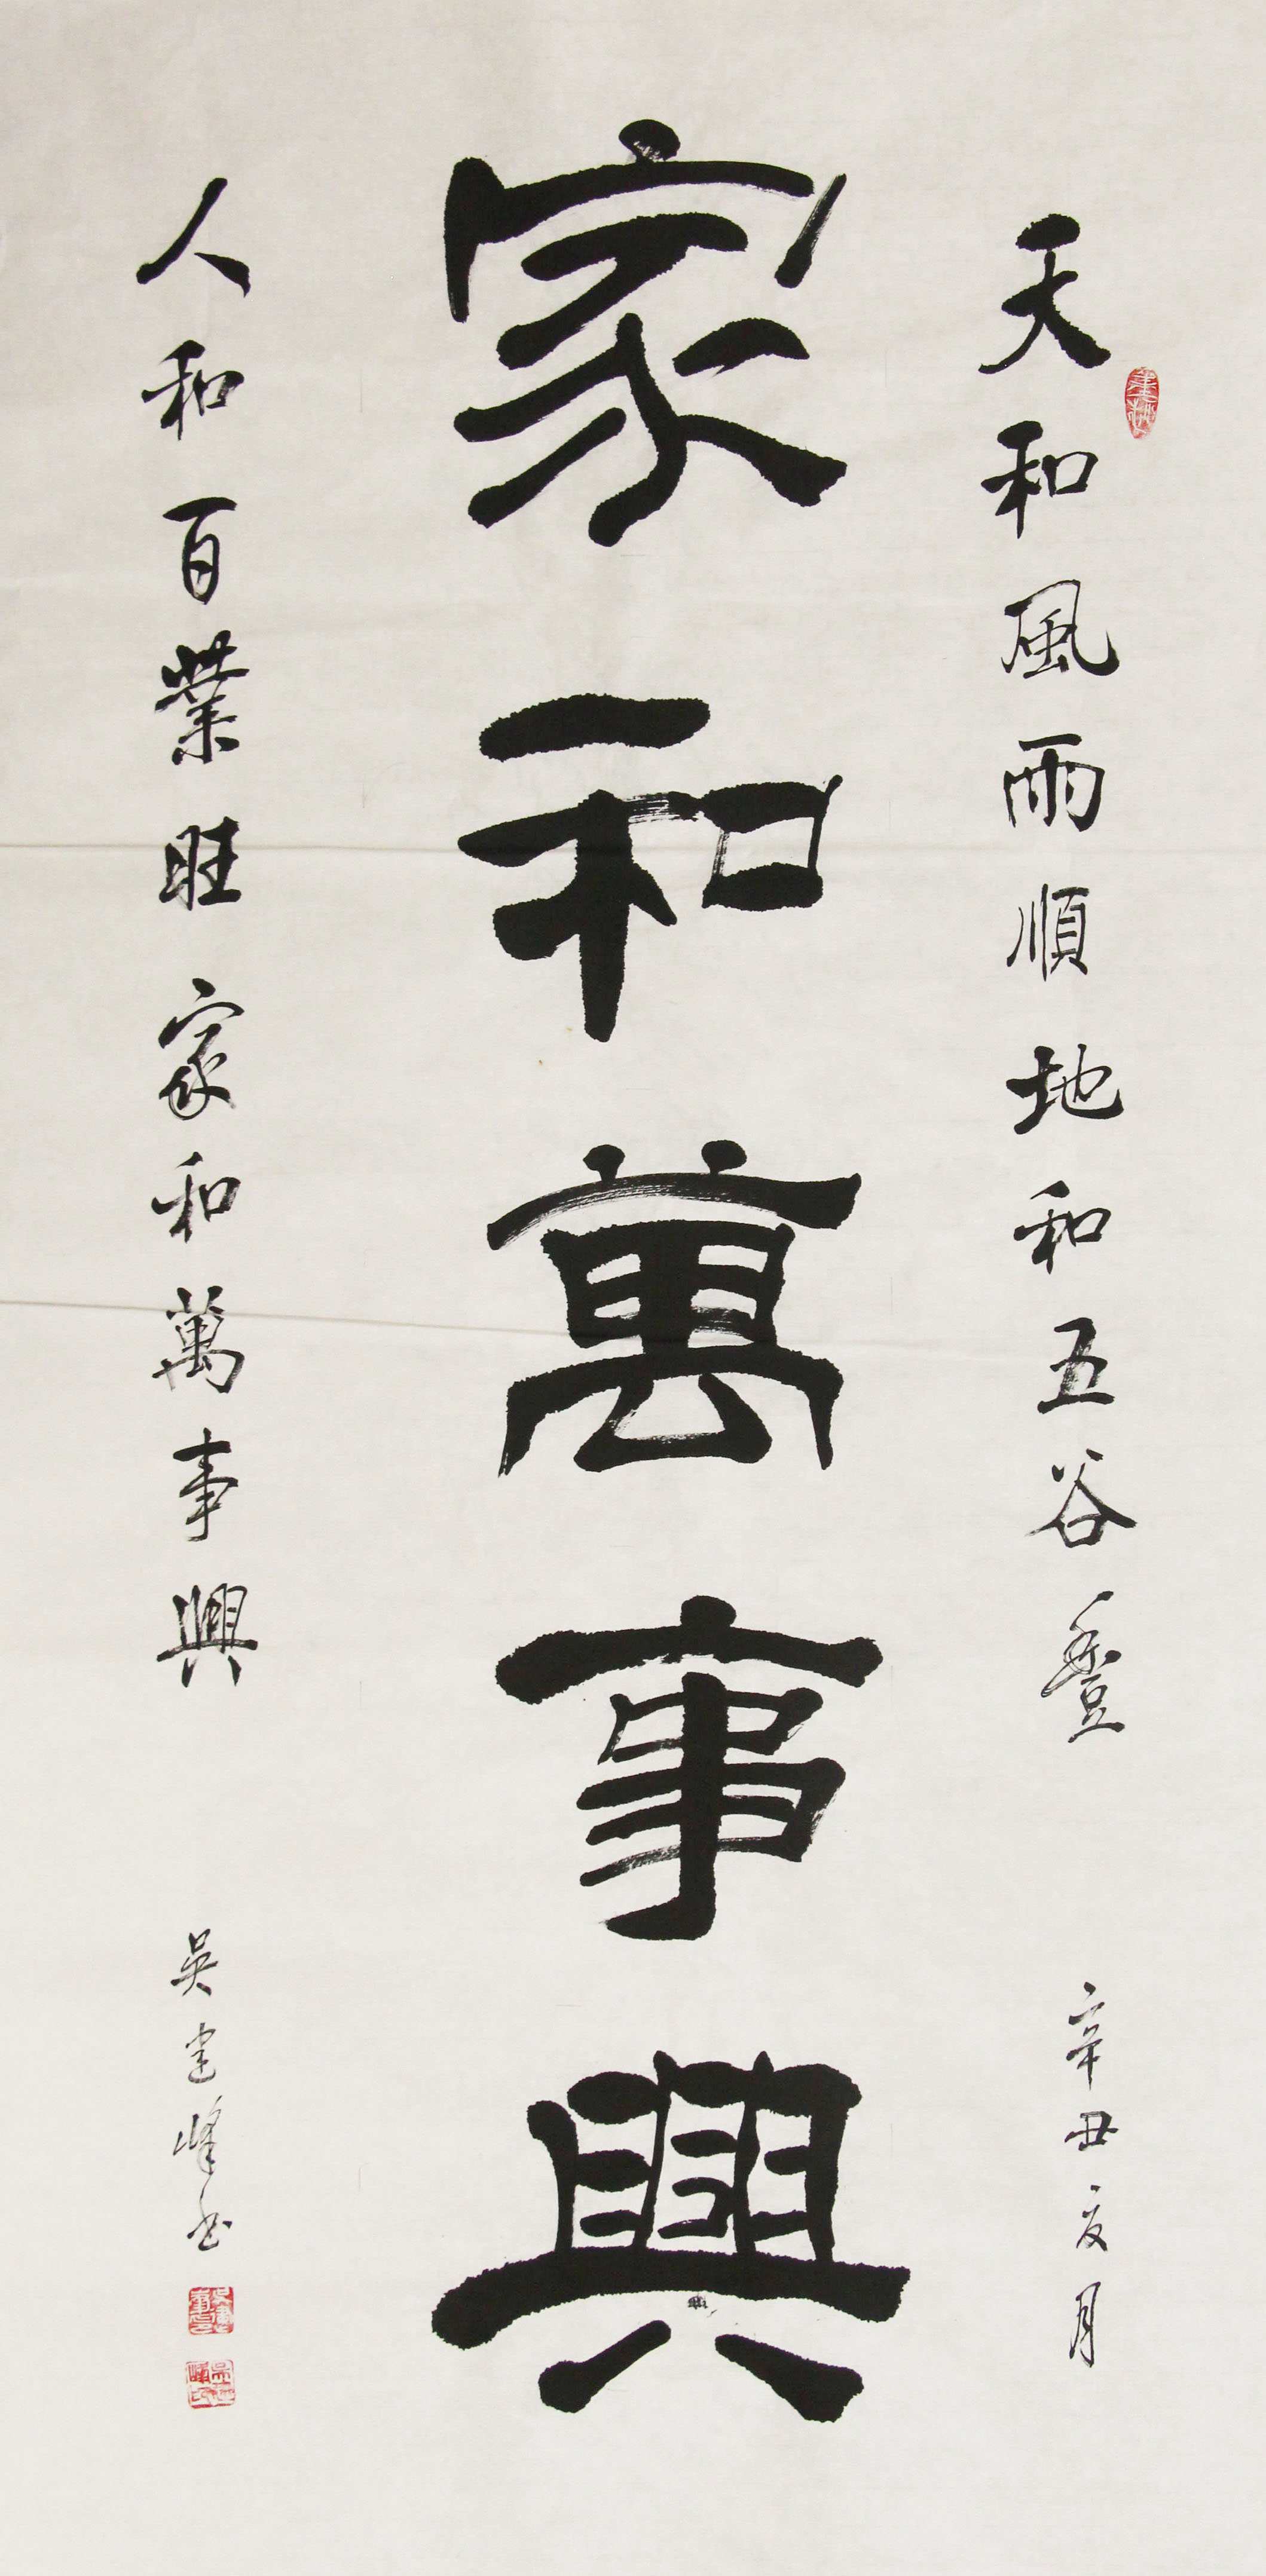 天和風雨順地和五谷豐
辛丑夏月
家和萬事興
人和百業旺家和萬事興
吴建峰书